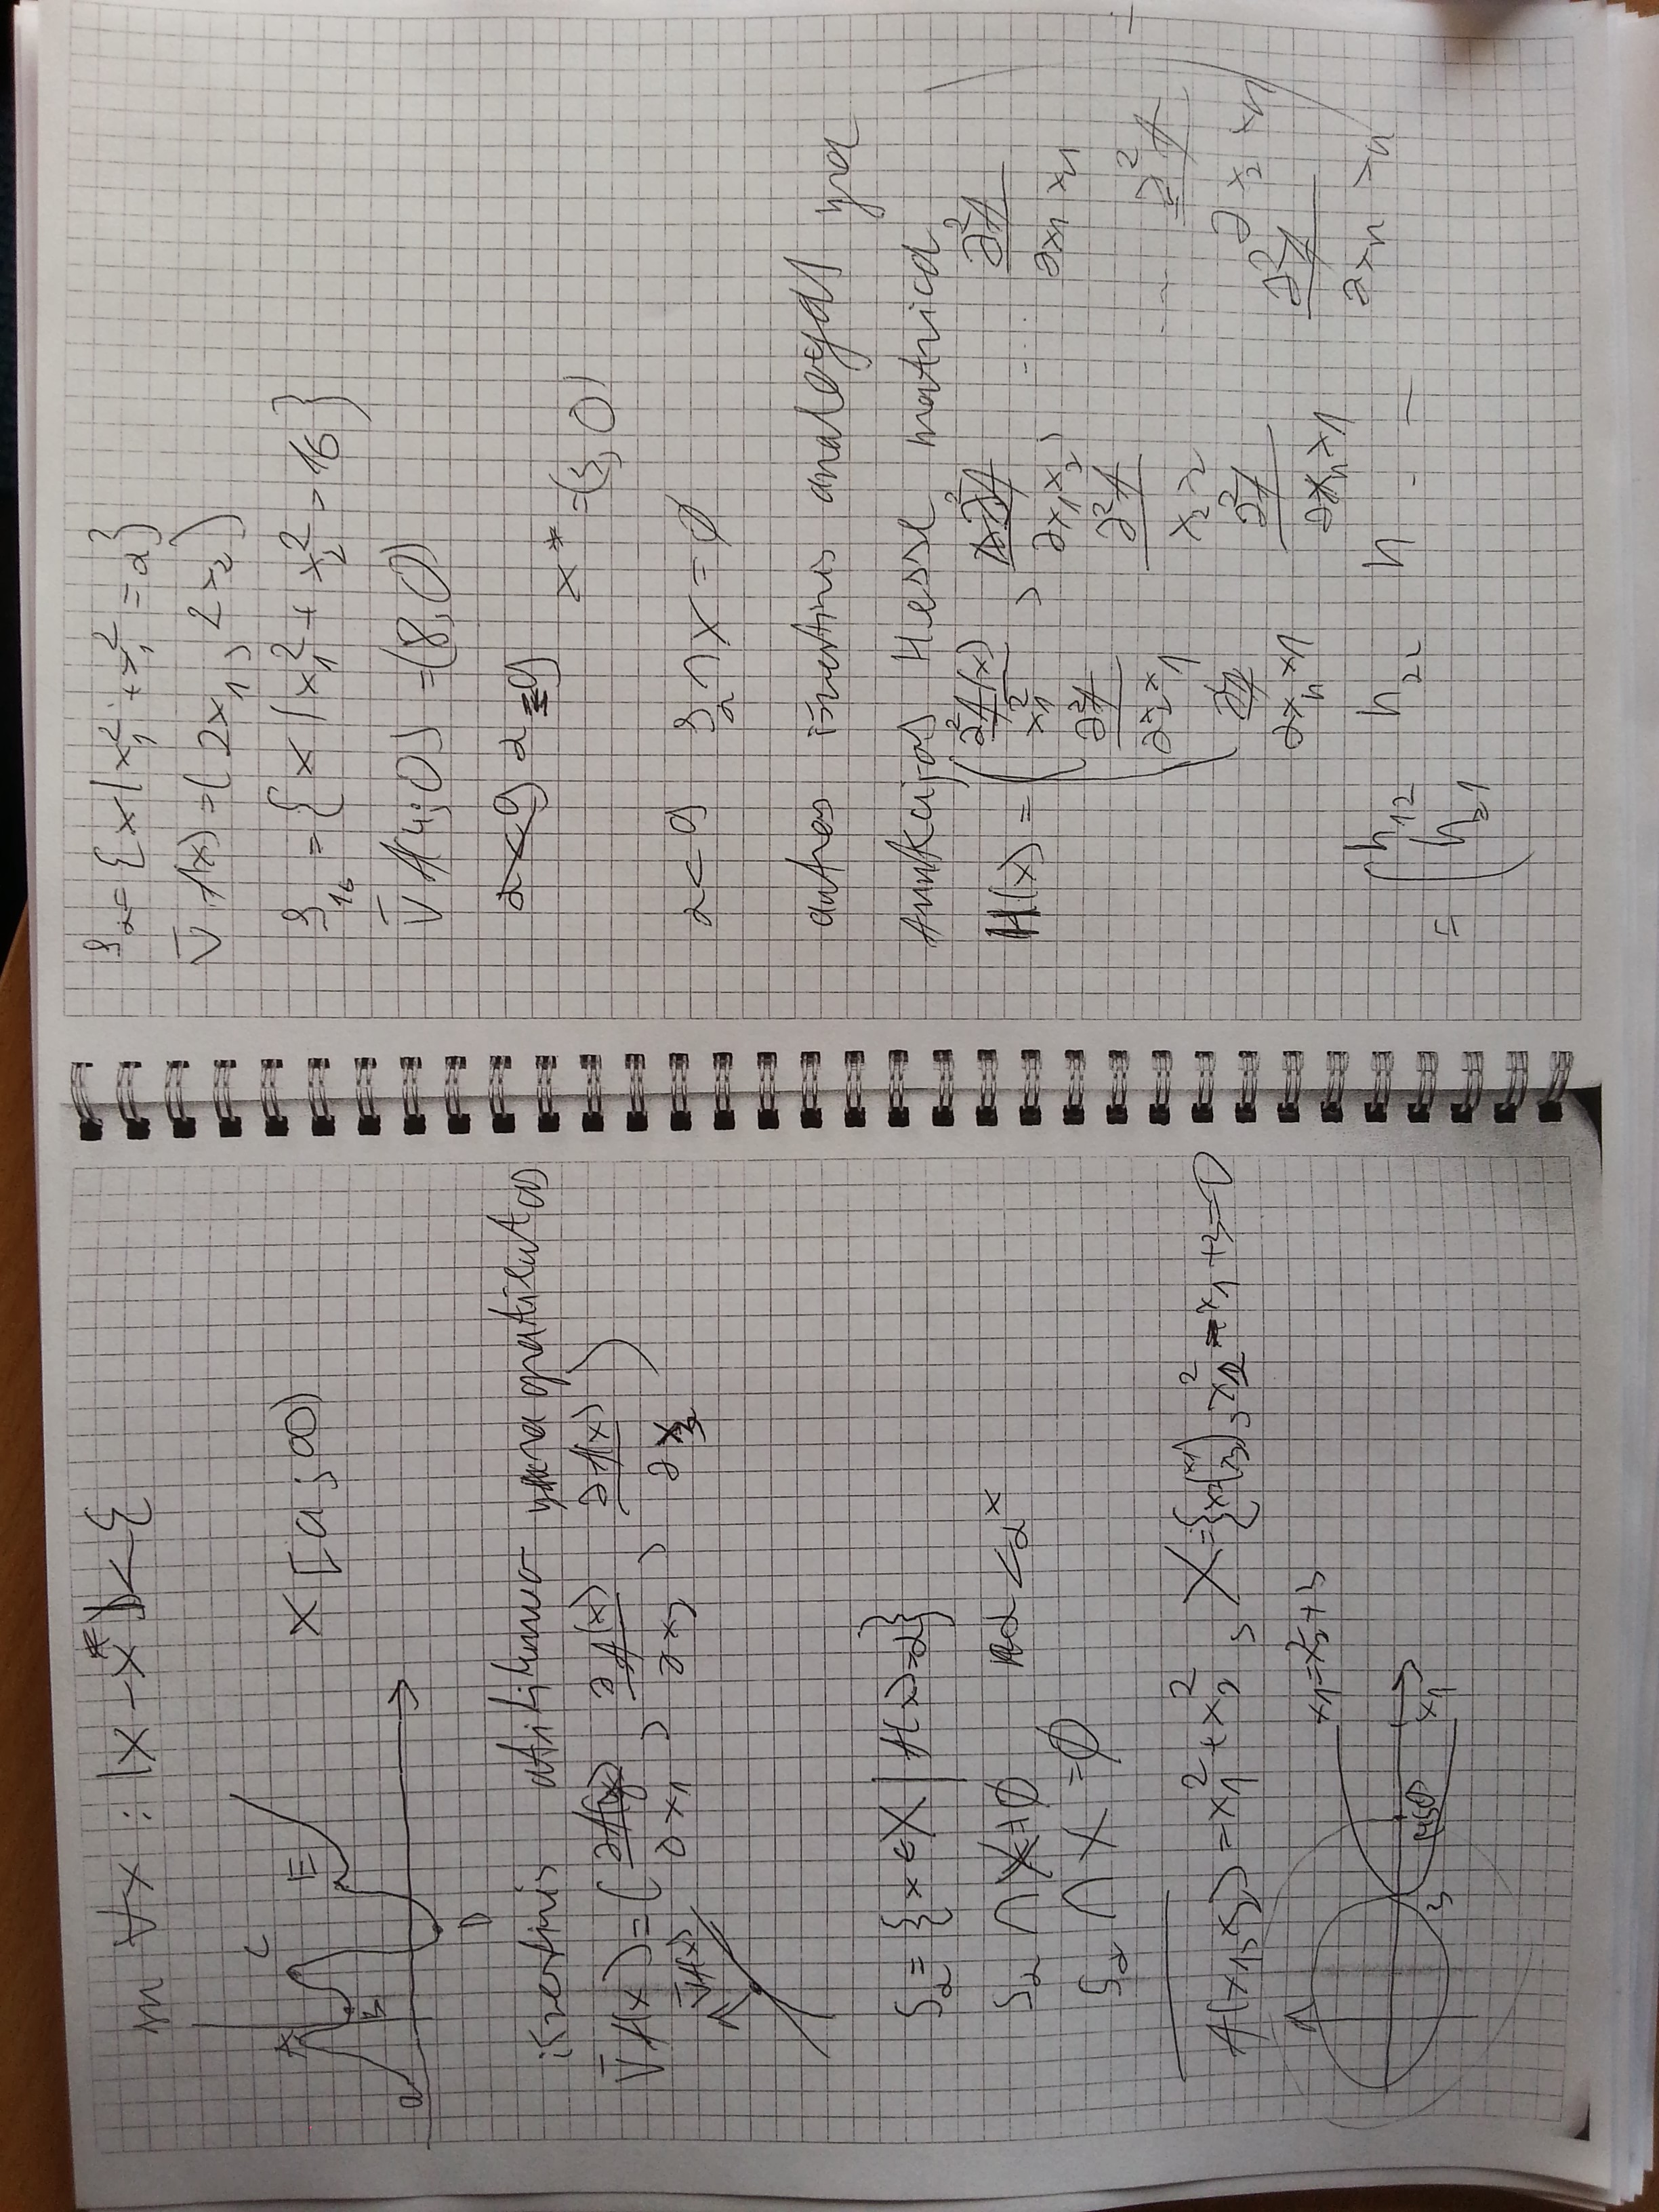 m ∀x : |x - x*| < ξ
A
C
E
B
a
D
x [a ; ∞)
išvestinis yra gradientas
∇f(x) = ( ∂f(x)/∂x1 , ∂f(x)/∂x2 , ∂f(x)/∂x3 )
∇f(x)
S_α = { x ∈ X | f(x) = α }
S_α ∩ X ≠ ∅ α < α^x
S_α ∩ X = ∅
f(x1, x2) = x1^2 + x2^2 , X = { x = (x1 x2) , x2^2 - x1 + 3 = 0
x1 = x2^2 + 3
3
(4,0)
x1
S_α = { x | x1^2 + x1^2 = α }
∇ f(x) = ( 2x1 , 2x2 )
S_16 = { x | x1^2 + x2^2 = 16 }
∇ f(4; 0) = (8, 0)
α < 9 α = 9
x* = (3, 0)
α < 9 S_α ∩ X = ∅
antros išvestinis analogas yra
funkcijos Hesse matrica
H(x) = ( ∂^2f(x)/x1^2 , ∂^2f/∂x1x2 , ... ∂^2f/∂x1 xn
∂^2f/∂x2x1 ∂^2f/x2^2 ... ∂^2f/∂x2 xn
∂^2f/∂xn x1 ∂^2f/∂xn x1 ∂^2f/∂xn xn
= ( h12 h22 h - -
h21